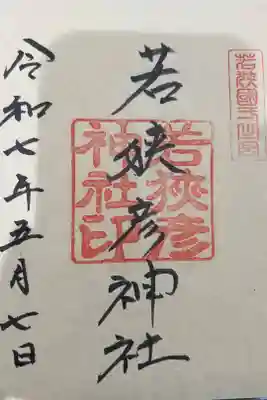 若狭國一之宮
若狹彦神社
若狹彦神社印
令和七年五月七日